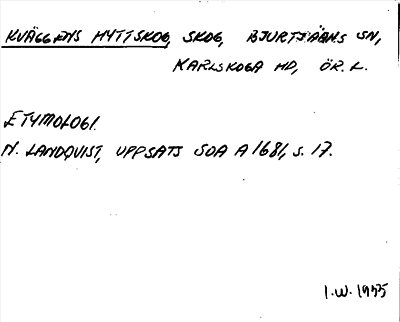 KVÄGGENS HYTTSKOG, SKOG, BJURTJÄRNS SN,
KARLSKOGA HD, ÖR. L.
ETYMOLOGI.
N. LANDQVIST, UPPSATS SOA A 1681, S. 17.
I.W. 1935